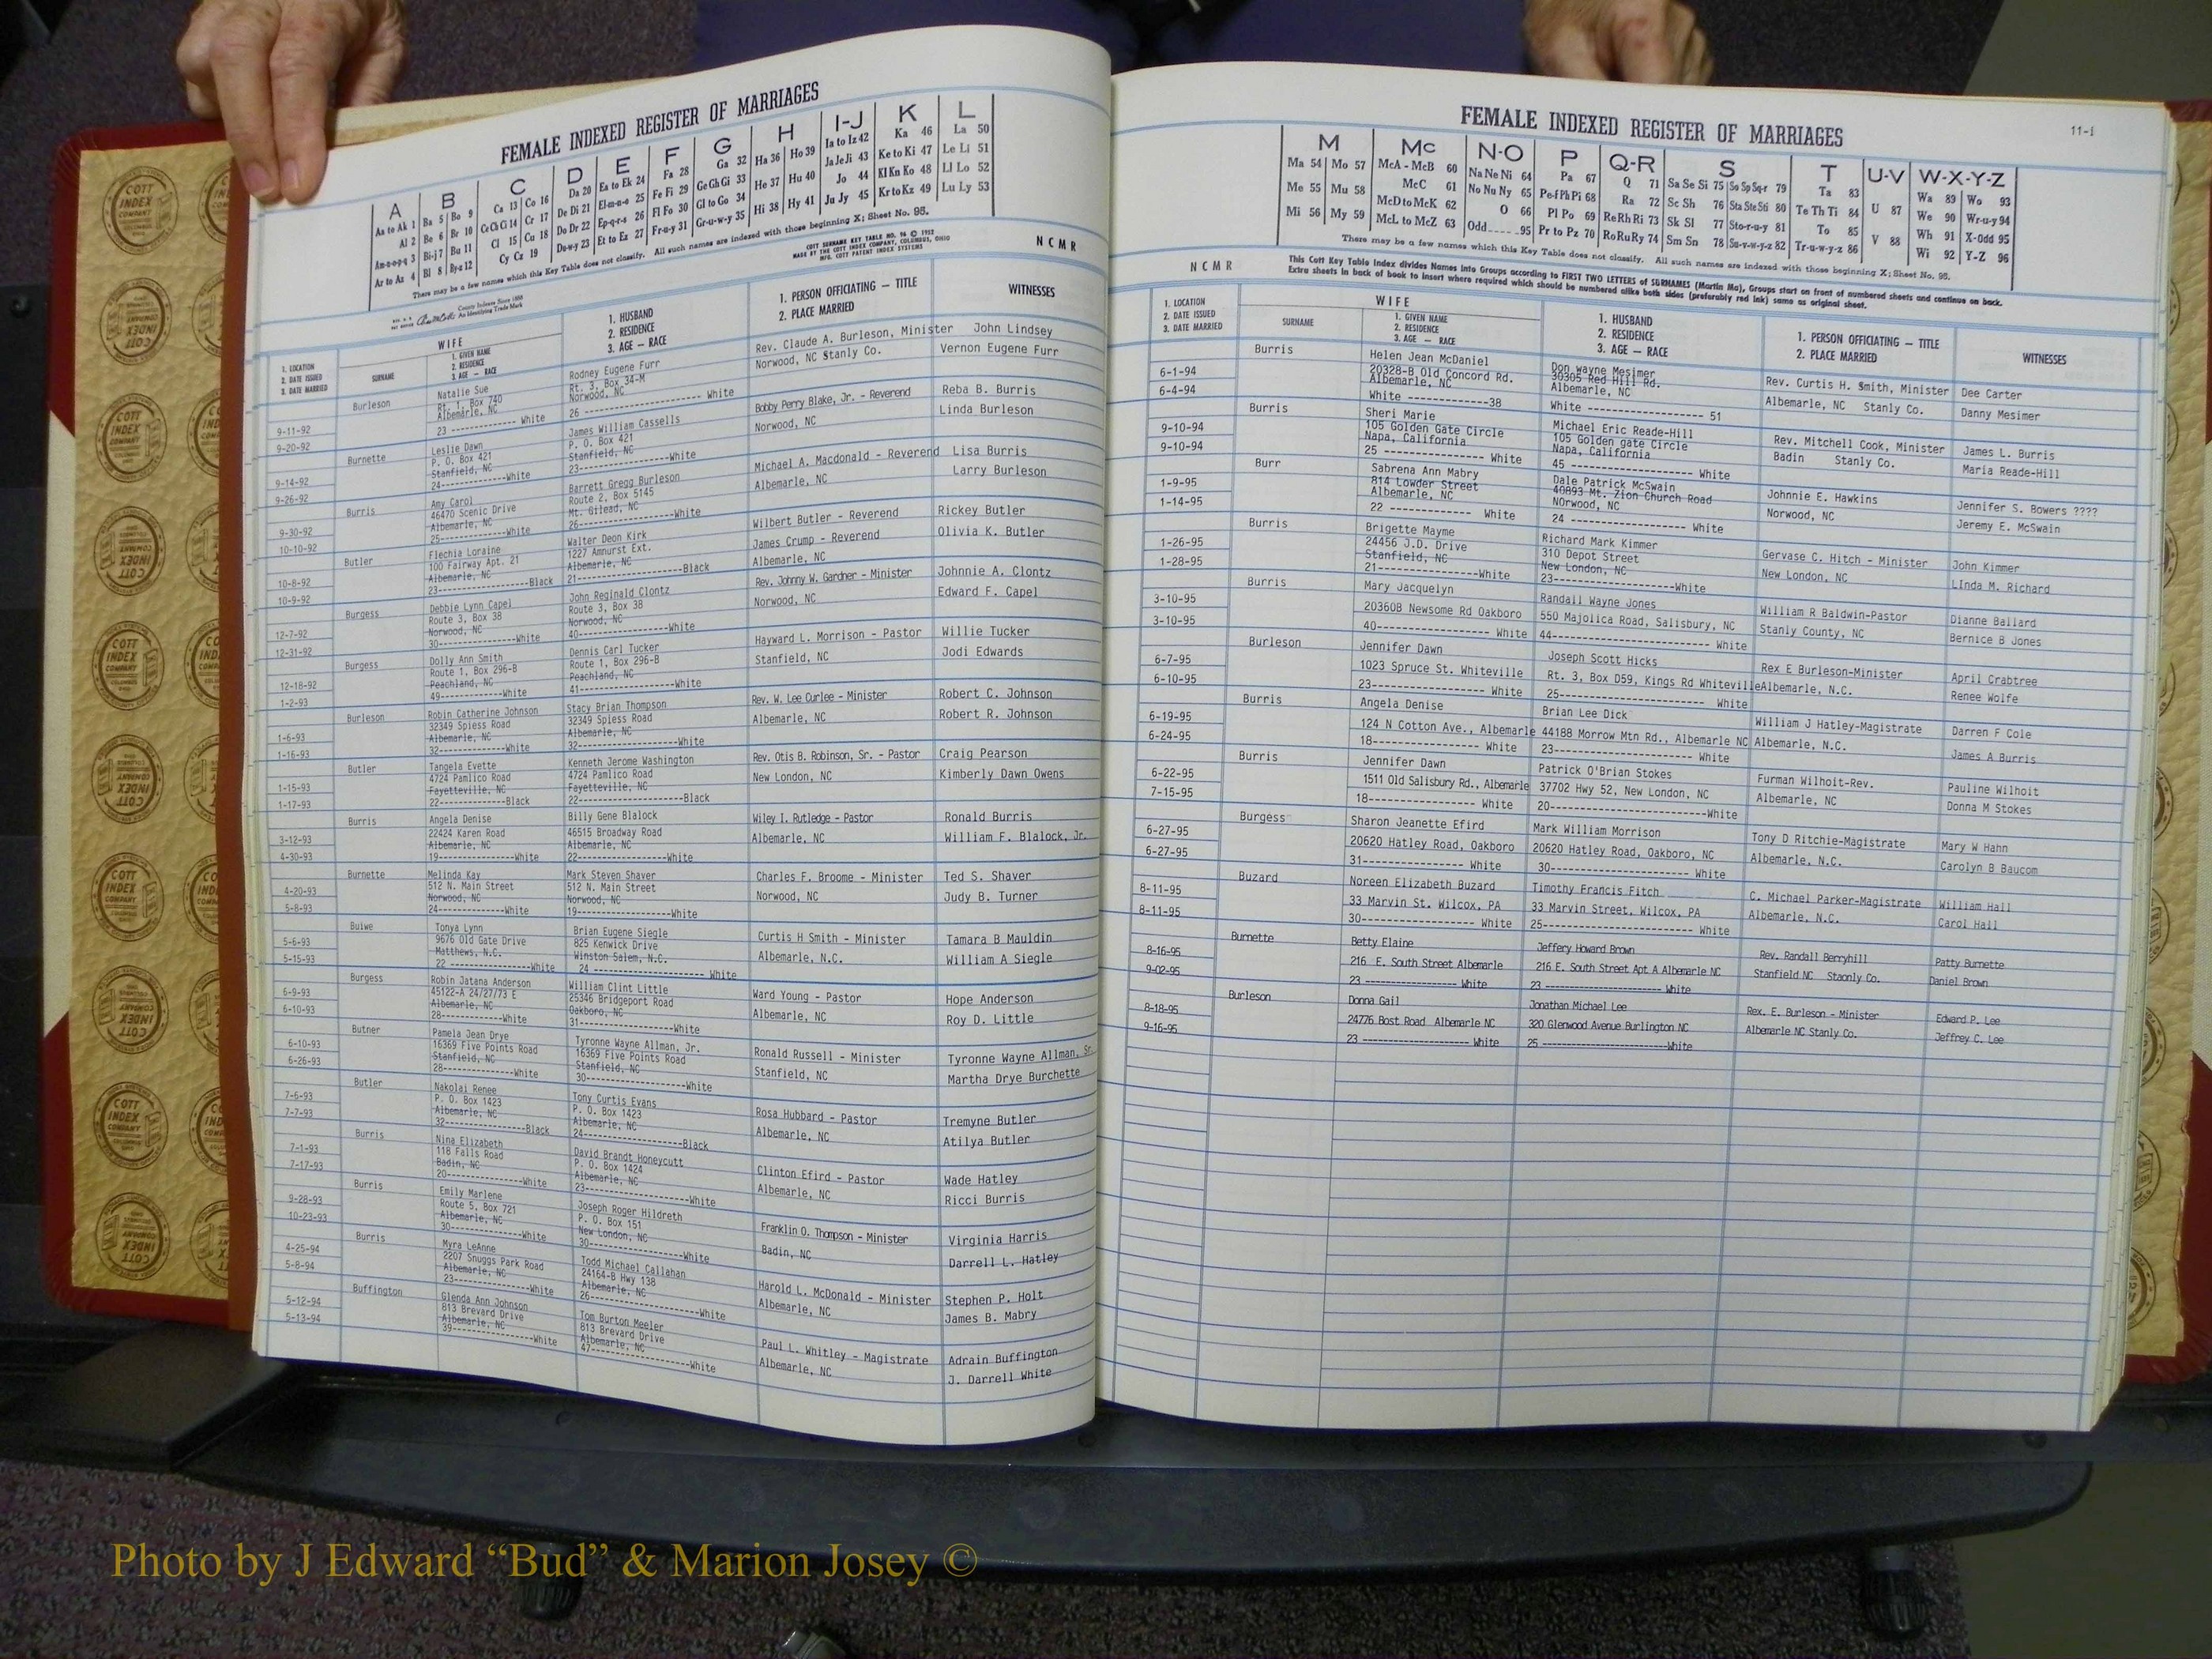 FEMALE INDEXED REGISTER OF MARRIAGES
A B C D E F G H I-J K L
Aa to Ak 1 Ba 5 Bo 9 Ca 13 Co 16 Da 20 Ea to Ek 24 Fa 28 Ga 32 Ha 36 Ho 39 Ia to Iz 42 Ka 46 La 50
Al 2 Be 6 Br 10 Ce Ch Ci 14 Cr 17 De Di 21 El-m-n-o 25 Fe Fi 29 Ge Gh Gi 33 He 37 Hu 40 Ja Je Ji 43 Ke to Ki 47 Le Li 51
Am-n-o-p-q 3 Bi-j 7 Bu 11 Cl 15 Cu 18 Do Dr 22 Ep-q-r-s 26 Fl Fo 30 Gl to Go 34 Hi 38 Hy 41 Jo 44 Kl Kn Ko 48 Ll Lo 52
Ar to Az 4 Bl 8 By-z 12 Cy Cz 19 Du-w-y 23 Et to Ez 27 Fr-u-y 31 Gr-u-w-y 35 Ju Jy 45 Kr to Kz 49 Lu Ly 53
There may be a few names which this Key Table does not classify. All such names are indexed with those beginning X; Sheet No. 95.
COTT SURNAME KEY TABLE NO. 96 © 1952
MADE BY THE COTT INDEX COMPANY, COLUMBUS, OHIO
MFG. COTT PATENT INDEX SYSTEMS
County Indexes Since 1888
An Identifying Trade Mark
NCMR
1. LOCATION
2. DATE ISSUED
3. DATE MARRIED
WIFE
SURNAME
1. GIVEN NAME
2. RESIDENCE
3. AGE — RACE
1. HUSBAND
2. RESIDENCE
3. AGE — RACE
1. PERSON OFFICIATING — TITLE
2. PLACE MARRIED
WITNESSES
9-11-92
9-20-92
Burleson
Natalie Sue
Rt. 1, Box 740
Albemarle, NC
23 ------------- White
Rodney Eugene Furr
Rt. 3, Box 34-M
Norwood, NC
26 ------------- White
Rev. Claude A. Burleson, Minister
Norwood, NC Stanly Co.
John Lindsey
Vernon Eugene Furr
9-14-92
9-26-92
Burnette
Leslie Dawn
P. O. Box 421
Stanfield, NC
24-------------White
James William Cassells
P. O. Box 421
Stanfield, NC
23-------------White
Bobby Perry Blake, Jr. - Reverend
Norwood, NC
Reba B. Burris
Linda Burleson
9-30-92
10-10-92
Burris
Amy Carol
46470 Scenic Drive
Albemarle, NC
25-------------White
Barrett Gregg Burleson
Route 2, Box 5145
Mt. Gilead, NC
26-------------White
Michael A. Macdonald - Reverend
Albemarle, NC
Lisa Burris
Larry Burleson
10-8-92
10-9-92
Butler
Flechia Loraine
100 Fairway Apt. 21
Albemarle, NC
23-------------Black
Walter Deon Kirk
1227 Amhurst Ext.
Albemarle, NC
21-------------Black
Wilbert Butler - Reverend
James Crump - Reverend
Albemarle, NC
Rickey Butler
Olivia K. Butler
12-7-92
12-31-92
Burgess
Debbie Lynn Capel
Route 3, Box 38
Norwood, NC
30-------------White
John Reginald Clontz
Route 3, Box 38
Norwood, NC
40-------------White
Rev. Johnny W. Gardner - Minister
Norwood, NC
Johnnie A. Clontz
Edward F. Capel
12-18-92
1-2-93
Burgess
Dolly Ann Smith
Route 1, Box 296-B
Peachland, NC
49-------------White
Dennis Carl Tucker
Route 1, Box 296-B
Peachland, NC
41-------------White
Hayward L. Morrison - Pastor
Stanfield, NC
Willie Tucker
Jodi Edwards
1-6-93
1-16-93
Burleson
Robin Catherine Johnson
32349 Spiess Road
Albemarle, NC
32-------------White
Stacy Brian Thompson
32349 Spiess Road
Albemarle, NC
32-------------White
Rev. W. Lee Curlee - Minister
Albemarle, NC
Robert C. Johnson
Robert R. Johnson
1-15-93
1-17-93
Butler
Tangela Evette
4724 Pamlico Road
Fayetteville, NC
22-------------Black
Kenneth Jerome Washington
4724 Pamlico Road
Fayetteville, NC
22-------------Black
Rev. Otis B. Robinson, Sr. - Pastor
New London, NC
Craig Pearson
Kimberly Dawn Owens
3-12-93
4-30-93
Burris
Angela Denise
22424 Karen Road
Albemarle, NC
19-------------White
Billy Gene Blalock
46515 Broadway Road
Albemarle, NC
22-------------White
Wiley I. Rutledge - Pastor
Albemarle, NC
Ronald Burris
William F. Blalock, Jr.
4-20-93
5-8-93
Burnette
Melinda Kay
512 N. Main Street
Norwood, NC
24-------------White
Mark Steven Shaver
512 N. Main Street
Norwood, NC
19-------------White
Charles F. Broome - Minister
Norwood, NC
Ted S. Shaver
Judy B. Turner
5-6-93
5-15-93
Buiwe
Tonya Lynn
9676 Old Gate Drive
Matthews, N.C.
22 -------------White
Brian Eugene Siegle
825 Kenwick Drive
Winston Salem, N.C.
24 ------------- White
Curtis H Smith - Minister
Albemarle, N.C.
Tamara B Mauldin
William A Siegle
6-9-93
6-10-93
Burgess
Robin Jatana Anderson
45122-A 24/27/73 E
Albemarle, NC
28-------------White
William Clint Little
25346 Bridgeport Road
Oakboro, NC
31-------------White
Ward Young - Pastor
Albemarle, NC
Hope Anderson
Roy D. Little
6-10-93
6-26-93
Butner
Pamela Jean Drye
16369 Five Points Road
Stanfield, NC
28-------------White
Tyronne Wayne Allman, Jr.
16369 Five Points Road
Stanfield, NC
30-------------White
Ronald Russell - Minister
Stanfield, NC
Tyronne Wayne Allman, Sr.
Martha Drye Burchette
7-6-93
7-7-93
Butler
Nakolai Renee
P. O. Box 1423
Albemarle, NC
32-------------Black
Tony Curtis Evans
P. O. Box 1423
Albemarle, NC
24-------------Black
Rosa Hubbard - Pastor
Albemarle, NC
Tremyne Butler
Atilya Butler
7-1-93
7-17-93
Burris
Nina Elizabeth
118 Falls Road
Badin, NC
20-------------White
David Brandt Honeycutt
P. O. Box 1424
Albemarle, NC
23-------------White
Clinton Efird - Pastor
Albemarle, NC
Wade Hatley
Ricci Burris
9-28-93
10-23-93
Burris
Emily Marlene
Route 5, Box 721
Albemarle, NC
30-------------White
Joseph Roger Hildreth
P. O. Box 151
New London, NC
30-------------White
Franklin O. Thompson - Minister
Badin, NC
Virginia Harris
Darrell L. Hatley
4-25-94
5-8-94
Burris
Myra LeAnne
2207 Snuggs Park Road
Albemarle, NC
23-------------White
Todd Michael Callahan
24164-B Hwy 138
Albemarle, NC
26-------------White
Harold L. McDonald - Minister
Albemarle, NC
Stephen P. Holt
James B. Mabry
5-12-94
5-13-94
Buffington
Glenda Ann Johnson
813 Brevard Drive
Albemarle, NC
39-------------White
Tom Burton Meeler
813 Brevard Drive
Albemarle, NC
47-------------White
Paul L. Whitley - Magistrate
Albemarle, NC
Adrain Buffington
J. Darrell White
FEMALE INDEXED REGISTER OF MARRIAGES
11-i
M Mc N-O P Q-R S T U-V W-X-Y-Z
Ma 54 Mo 57 McA - McB 60 Na Ne Ni 64 Pa 67 Q 71 Sa Se Si 75 So Sp Sq-r 79 Ta 83 U 87 Wa 89 Wo 93
Me 55 Mu 58 McC 61 No Nu Ny 65 Pe-f Ph Pi 68 Ra 72 Sc Sh 76 Sta Ste Sti 80 Te Th Ti 84 V 88 We 90 Wr-u-y 94
Mi 56 My 59 McD to McK 62 O 66 Pl Po 69 Re Rh Ri 73 Sk Sl 77 Sto-r-u-y 81 To 85 Wh 91 X-Odd 95
McL to McZ 63 Odd 95 Pr to Pz 70 Ro Ru Ry 74 Sm Sn 78 Su-v-w-y-z 82 Tr-u-w-y-z 86 Wi 92 Y-Z 96
There may be a few names which this Key Table does not classify. All such names are indexed with those beginning X; Sheet No. 95.
This Cott Key Table Index divides Names into Groups according to FIRST TWO LETTERS of SURNAMES (Martin Ma), Groups start on front of numbered sheets and continue on back.
Extra sheets in back of book to insert where required which should be numbered alike both sides (preferably red ink) same as original sheet.
NCMR
1. LOCATION
2. DATE ISSUED
3. DATE MARRIED
WIFE
SURNAME
1. GIVEN NAME
2. RESIDENCE
3. AGE — RACE
1. HUSBAND
2. RESIDENCE
3. AGE — RACE
1. PERSON OFFICIATING — TITLE
2. PLACE MARRIED
WITNESSES
6-1-94
6-4-94
Burris
Helen Jean McDaniel
20328-B Old Concord Rd.
Albemarle, NC
White ------------38
Don wayne Mesimer
30305 Red Hill Rd.
Albemarle, NC
White ------------- 51
Rev. Curtis H. Smith, Minister
Albemarle, NC Stanly Co.
Dee Carter
Danny Mesimer
9-10-94
9-10-94
Burris
Sheri Marie
105 Golden Gate Circle
Napa, California
25 ------------- White
Michael Eric Reade-Hill
105 Golden gate Circle
Napa, California
45 ------------- White
Rev. Mitchell Cook, Minister
Badin Stanly Co.
James L. Burris
Maria Reade-Hill
1-9-95
1-14-95
Burr
Sabrena Ann Mabry
814 Lowder Street
Albemarle, NC
22 ------------ White
Dale Patrick McSwain
40893 Mt. Zion Church Road
NOrwood, NC
24 ------------- White
Johnnie E. Hawkins
Norwood, NC
Jennifer S. Bowers ????
Jeremy E. McSwain
1-26-95
1-28-95
Burris
Brigette Mayme
24456 J.D. Drive
Stanfield, NC
21-------------White
Richard Mark Kimmer
310 Depot Street
New London, NC
23-------------White
Gervase C. Hitch - Minister
New London, NC
John Kimmer
LInda M. Richard
3-10-95
3-10-95
Burris
Mary Jacquelyn
20360B Newsome Rd Oakboro
40------------- White
Randall Wayne Jones
550 Majolica Road, Salisbury, NC
44------------- White
William R Baldwin-Pastor
Stanly County, NC
Dianne Ballard
Bernice B Jones
6-7-95
6-10-95
Burleson
Jennifer Dawn
1023 Spruce St. Whiteville
23------------- White
Joseph Scott Hicks
Rt. 3, Box D59, Kings Rd Whiteville
25------------- White
Rex E Burleson-Minister
Albemarle, N.C.
April Crabtree
Renee Wolfe
6-19-95
6-24-95
Burris
Angela Denise
124 N Cotton Ave., Albemarle
18------------- White
Brian Lee Dick
44188 Morrow Mtn Rd., Albemarle NC
23------------- White
William J Hatley-Magistrate
Albemarle, N.C.
Darren F Cole
James A Burris
6-22-95
7-15-95
Burris
Jennifer Dawn
1511 Old Salisbury Rd., Albemarle
18------------- White
Patrick O'Brian Stokes
37702 Hwy 52, New London, NC
20-------------White
Furman Wilhoit-Rev.
Albemarle, NC
Pauline Wilhoit
Donna M Stokes
6-27-95
6-27-95
Burgess
Sharon Jeanette Efird
20620 Hatley Road, Oakboro
31------------- White
Mark William Morrison
20620 Hatley Road, Oakboro, NC
30------------- White
Tony D Ritchie-Magistrate
Albemarle, N.C.
Mary W Hahn
Carolyn B Baucom
8-11-95
8-11-95
Buzard
Noreen Elizabeth Buzard
33 Marvin St. Wilcox, PA
30------------- White
Timothy Francis Fitch
33 Marvin Street, Wilcox, PA
25------------- White
C. Michael Parker-Magistrate
Albemarle, N.C.
William Hall
Carol Hall
8-16-95
9-02-95
Burnette
Betty Elaine
216 E. South Street Albemarle
23 ------------- White
Jeffery Howard Brown
216 E. South Street Apt A Albemarle NC
23 ------------- White
Rev. Randall Berryhill
Stanfield NC Staonly Co.
Patty Burnette
Daniel Brown
8-18-95
9-16-95
Burleson
Donna Gail
24776 Bost Road Albemarle NC
23 ------------- White
Jonathan Michael Lee
320 Glenwood Avenue Burlington NC
25 -------------White
Rex. E. Burleson - Minister
Albemarle NC Stanly Co.
Edward P. Lee
Jeffrey C. Lee
COTT
INDEX
COMPANY
Photo by J Edward “Bud” & Marion Josey ©